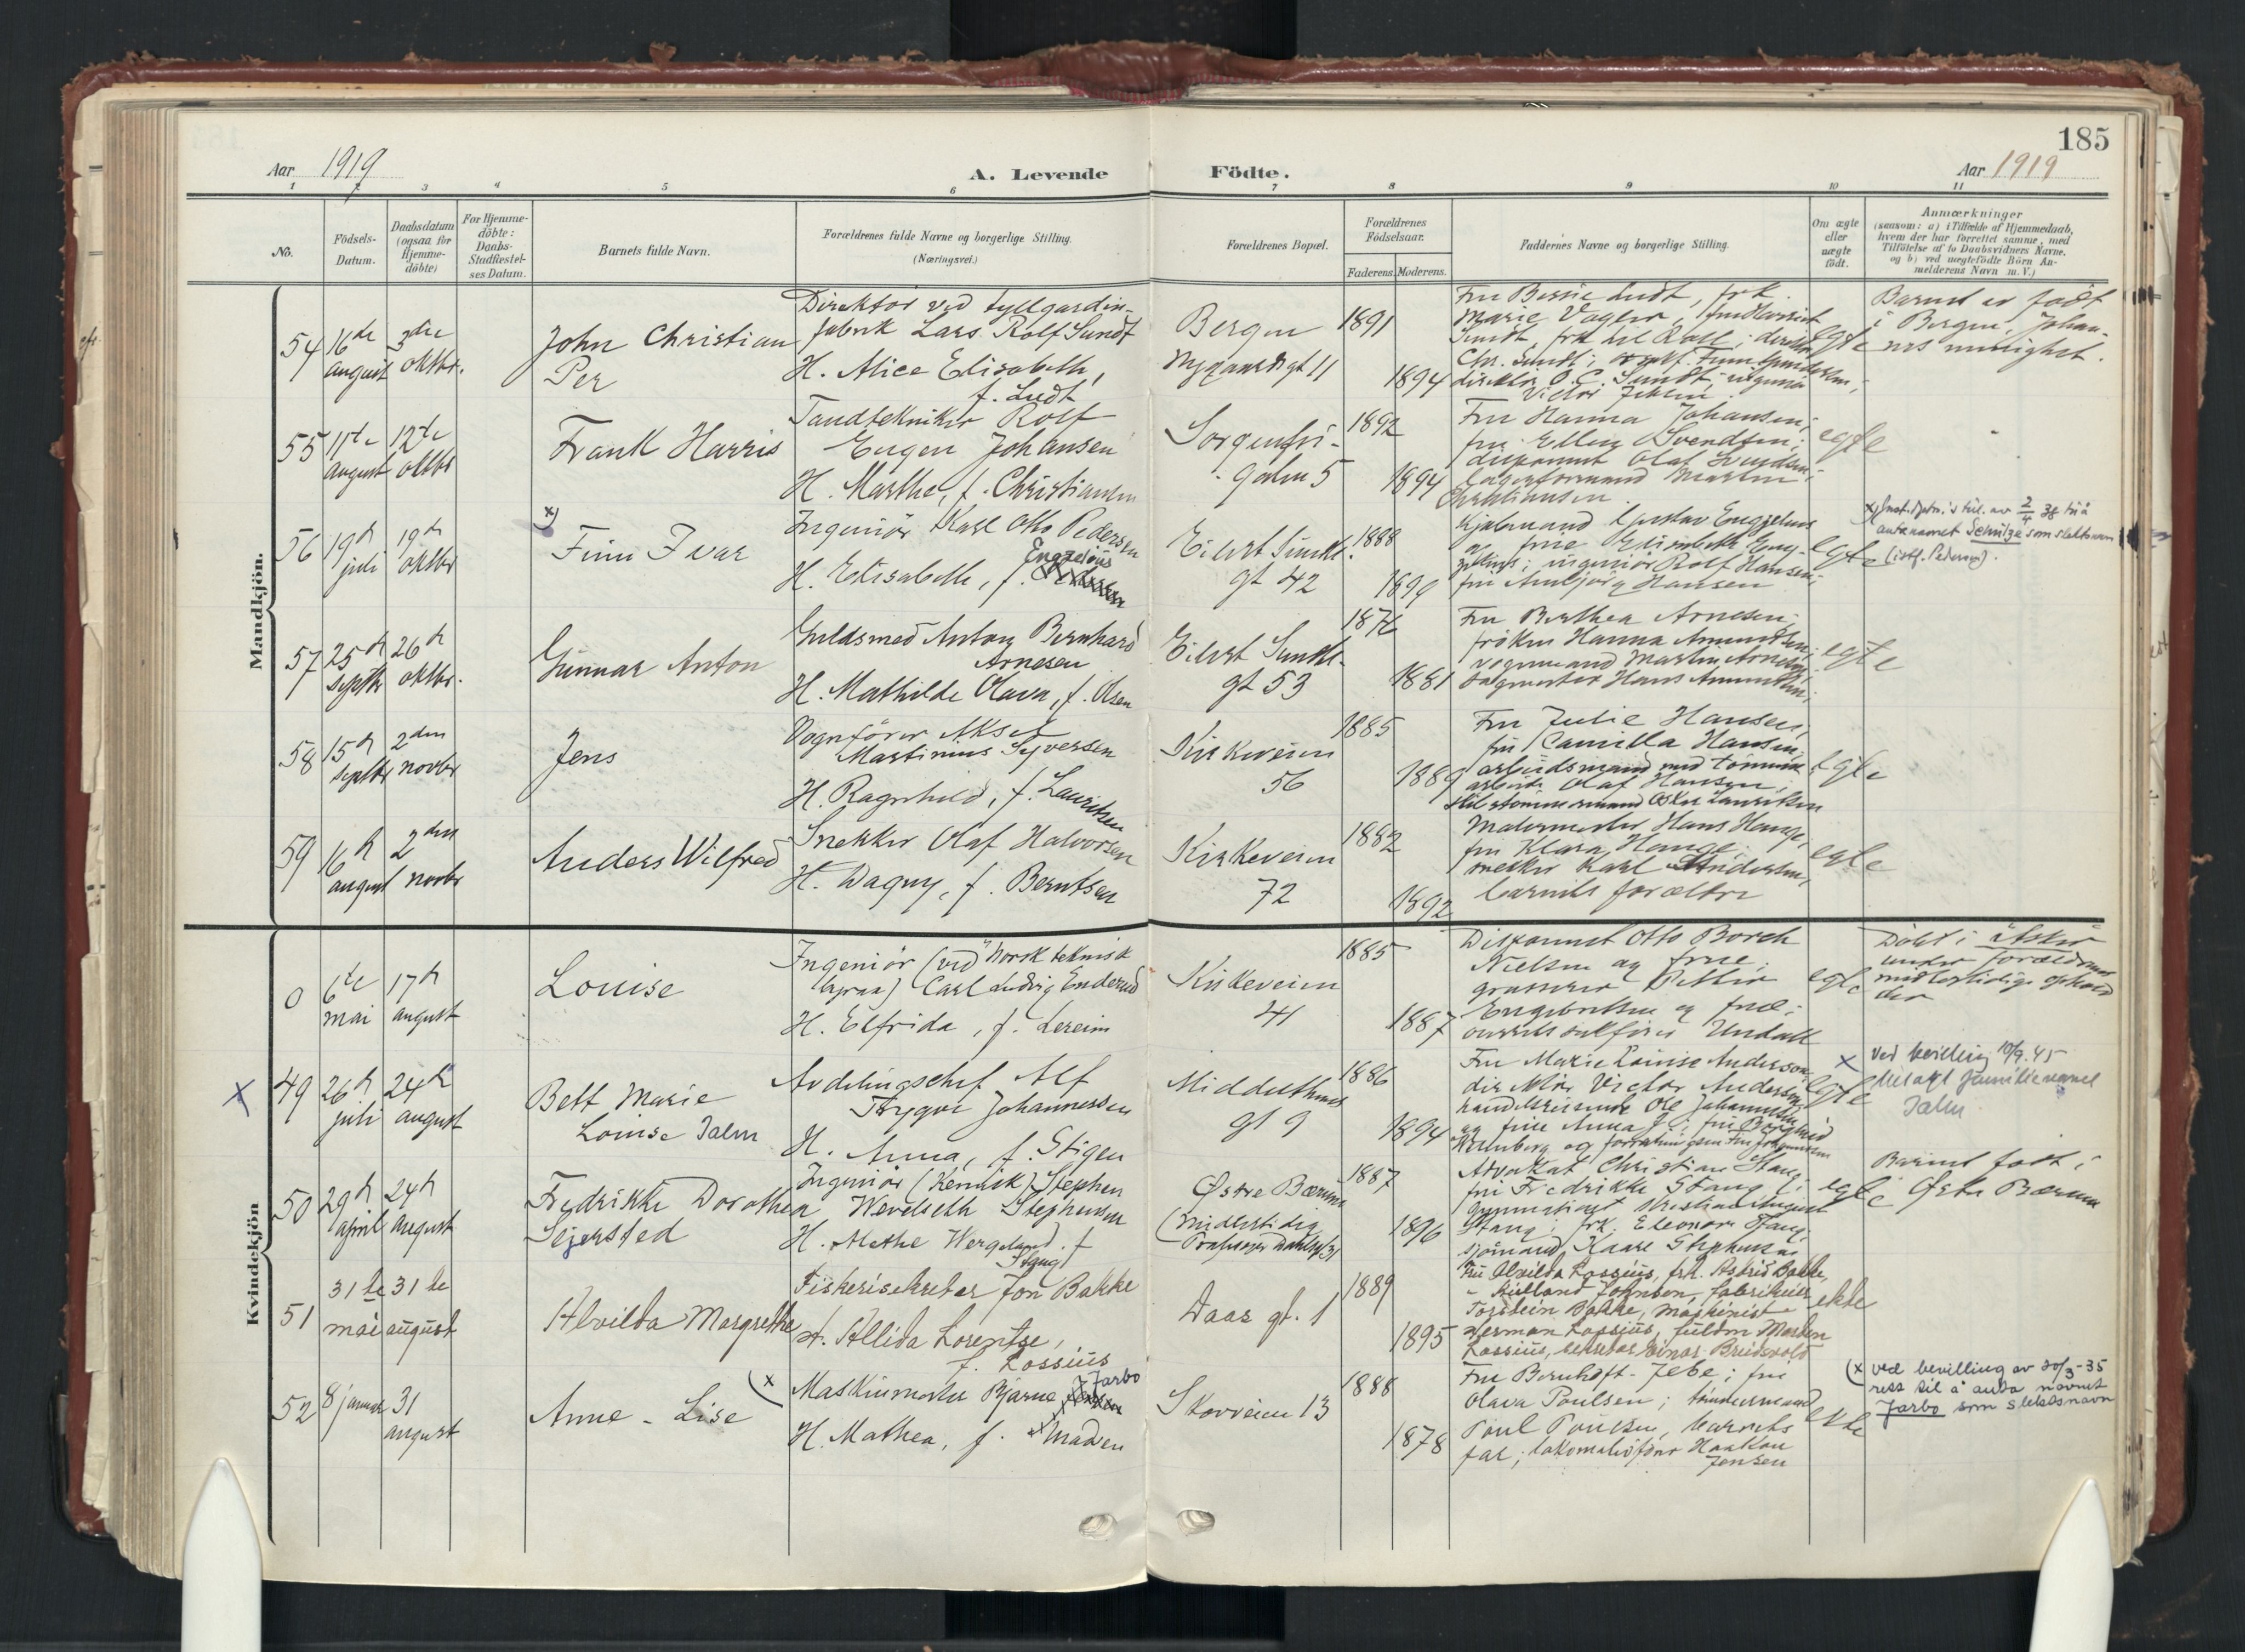 185
Aar 1919
A. Levende Födte.
Aar 1919
1 2 3 4 5 6 7 8 9 10 11
No.
Födsels-
Datum.
Daabsdatum
(ogsaa for
Hjemme-
döbte)
For Hjemme-
döbte:
Daabs-
Stadfæstel-
ses Datum.
Barnets fulde Navn.
Forældrenes fulde Navne og borgerlige Stilling.
(Næringsvei.)
Forældrenes Bopæl.
Forældrenes
Födselsaar.
Faderens. Moderens.
Faddernes Navne og borgerlige Stilling.
Om ægte
eller
uægte
födt.
Anmærkninger
(saasom: a) i Tilfælde af Hjemmedaab,
hvem der har forrettet samme, med
Tilföielse af to Daabsvidners Navne.
og b) ved uegtefödte Börn An-
melderens Navn m. V.)
Mandkjön.
54
16de
august
3die
oktbr.
John Christian
Per
Direktör ved tyllgardin-
fabrik Lars Rolf Sundt
H. Alice Elisabeth,
f. Ludt
Bergen
Nygaardsgt 11
1891
1894
Fru Bessie Ludt, frk.
Marie Vogler,
Sundt, frk Lil Roll; direktör
Chr. Sundt;
direktör O. C. Sundt; ingeniör
Victor
egte
Barnet er födt
i Bergen, Johan-
nes menighet.
55
11te
august
12te
oktbr
Frank Harris
Tandtekniker Rolf
Eugen Johansen
H. Marthe, f. Christiansen
Sorgenfri-
gaten 5
1892
1894
Fru Hanna Johansen;
fru Ellen Svendsen;
disponent Olaf Svendsen;
lagerformand Martin
Christiansen.
egte
56
19de
juli
19de
oktbr
x)
Finn Ivar
Ingeniör Karl Otto Pedersen
H. Elisabeth, f. Engzelius
Eilert Sundts
gt 42
1888
1890
Kjöbmand Gustav Engzelius
og frue Elisabeth Eng-
zelius; ingeniör Rolf Hansen;
fru Ambjörg Hansen
egte
x) Just.dptm.'s till. av 2/4 38 til å
anta navnet Schulze som slektsnavn
(istf. Pedersen).
57
25de
septbr
26de
oktbr.
Gunnar Anton
Guldsmed Anton Bernhard
Arnesen
H. Mathilde Olava, f. Olsen
Eilert Sundts
gt 53
1876
1881
Fru Berthea Arnesen;
fröken Hanna Amundsen;
vognmand Martin Arnesen;
Hans Amundsen;
egte
58
15de
septbr
2den
novbr
Jens
Vognförer Aksel
Martinius Syversen
H. Ragnhild, f. Lauritsen
Kirkeveien
56
1885
1889
Fru Julie Hansen,
fru Camilla Hansen,
arbeidsmand
arbeider Olaf Hansen,
skibstömmermand Oskar Lauritsen
egte
59
16de
august
2den
novbr
Anders Wilfred
Snekker Olaf Halvorsen
H. Dagny, f. Berntsen
Kirkeveien
72
1882
1892
Malermester Hans Hauge,
fru Klara Hauge,
snekker Karl Andersen,
barnets forældre
egte
Kvindekjön
0
6te
mai
17de
august
Louise
Ingeniör (ved "norsk teknisk
byraa) Carl Ludvig Enderud
H. Elfrida, f. Lereim
Kirkeveien
41
1885
1887
Disponent Otto Borch
Nielsen og frue;
grosserer Petter
Engebretsen og frue;
overretssakförer Undall
egte
Döbt i Asker
under forældrenes
midlertidige ophold
der
x
49
26de
juli
24de
august
Bett Marie
Louise Jalm
Avdelingschef Alf
Trygve Johannessen
H. Anna, f. Stigen
Middelthuns
gt 9
1886
1894
Fru Marie Louise Anderson;
direktör Victor Anderson;
handelsreisende Ole Johannessen
og frue Anna J.; fru Borghild
Wennberg og
egte
x ved bevilling 10/9.45
tilagt familienavnet
Jalm
50
29de
april
24de
august
Fredrikke Dorothea
Sejersted
Ingeniör (Kemisk) Stephen
Wevelseth Stephensen
H. Mathe Wergeland f.
Stang
Östre Bærum
(midlertidig
Professor Dahlsgt 31)
1887
1896
Advokat Christian Stang,
fru Fredrikke Stang;
gymnasiast Kristian August
Stang; frk. Eleonore Stang;
sjömand Kaare Stephensen
egte
Barnet födt i
Östre Bærum
51
31te
mai
31te
august
Alvilda Margrethe
Fiskerisekretær Jon Bakke
H. Allida Lorentze,
f. Lossius
Daas gt. 1
1889
1895
Fru Alvilda Lossius, frk. Astrid Bakke,
" Kielland Johnsen, fabrikeier
Torstein Bakke, maskinist
Herman Lossius, fuldm Morten
Lossius, sekretær Einar Breidsvold
ekte
52
8 januar
31
august
Anne - Lise
(x
Maskinmester Bjarne Jarbo
H. Mathea, f. Madsen
Skovveien 13
1888
1878
Fru Bernhoft-Jebe; fru
Olava Poulsen; tömmermand
Poul Poulsen, barnets
far; lokomotivförer Haakon
Jensen
ekte
(x ved bevilling av 20/3-35
rett til å anta navnet
Jarbo som slektsnavn